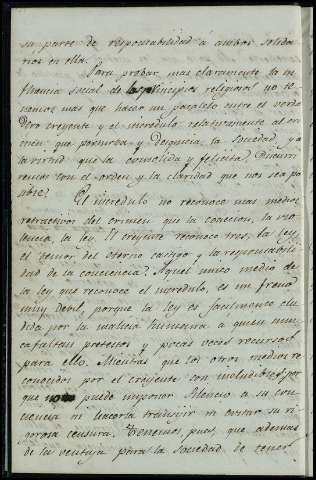 su parte de responsabilidad á ambos solida
rios en ella.
Para probar mas claramente la in
fluencia social de los principios religiosos no te
nemos mas que hacer un paralelo entre el verda
dero creyente y el incredulo relativamente al cri
men que perturba y desquicia la sociedad, y a
la virtud que la consolida y felicita. Discurri
remos con el orden y la claridad que nos sea po
sible.
El incredulo no reconoce mas medios
retractivos del crimen que la coaccion, la vio
lencia, la ley. El creyente reconoce tres, la ley,
el temor del eterno castigo y la responsabili
dad de la conciencia. Aquel unico medio de
la ley que reconoce el incredulo, es un freno
muy debil, porque la ley es facilmente elu
dida por la malicia humana a quien nun
ca faltan pretestos y pocas veces recursos
para ello. Mientras que los otros medios re
conocidos por el creyente son ineludibles por
que no puede imponer silencio a su con
ciencia ni hacerla traducir ni evitar su ri
gorosa censura. Tenemos, pues, que ademas
de la ventaja para la sociedad de tener